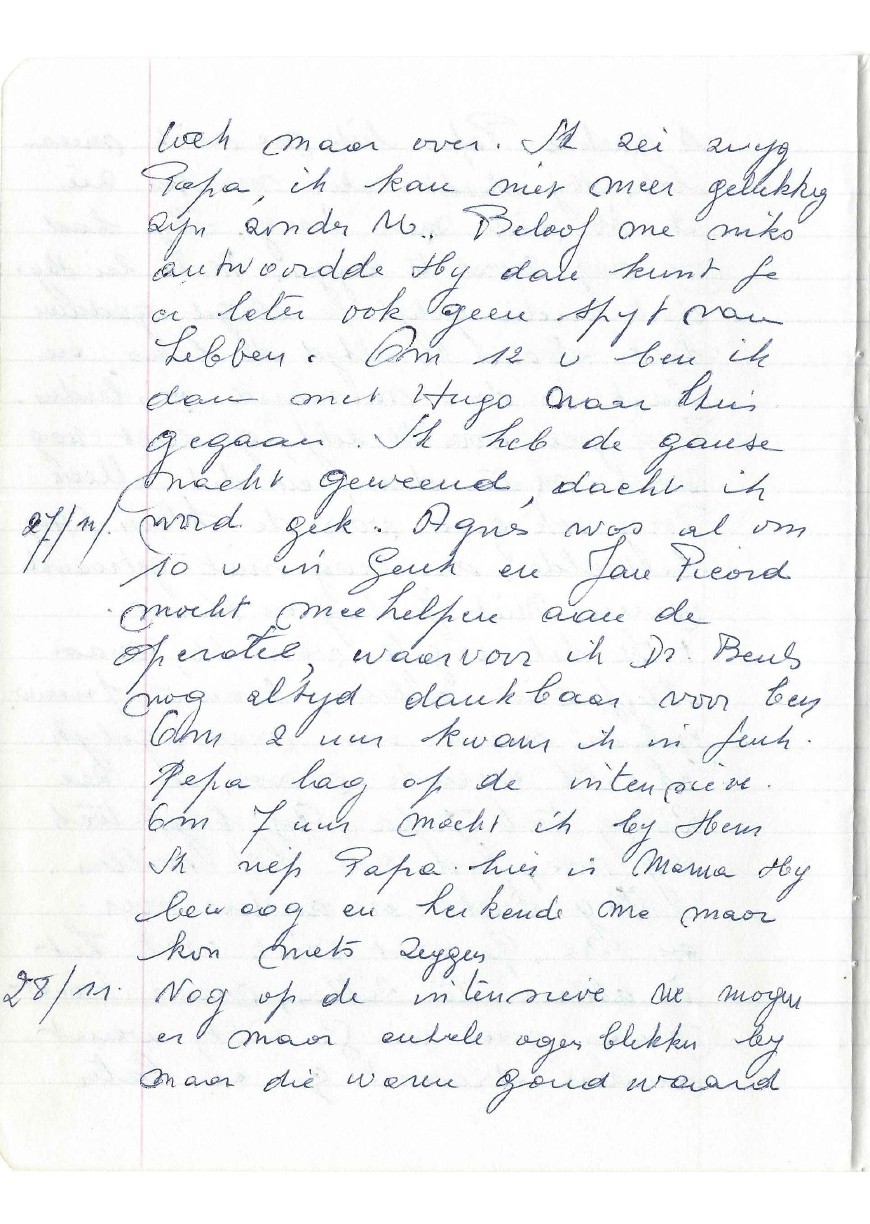 toch maar over. Ik zei zwyg
Papa, ik kan niet meer gelukkig
zyn zonder U., Beloof me niks
antwoordde Hy dan kunt Je
er later ook geen spyt van
hebben. Om 12 u ben ik
dan met Hugo naar thuis
gegaan. Ik heb de ganse
nacht geweend, dacht ik
27/11/. word gek. Agnès was al om
10 u in Genk en Jan Picard
mocht meehelpen aan de
operatie, waarvoor ik Dr.
nog altyd dankbaar voor ben
Om 2 uur kwam ik in Genk.
Papa lag op de intensieve.
Om 7 uur mocht ik by Hem
Ik riep Papa hier is Mama Hy
bewoog en herkende me maar
kon niets zeggen
28/11. Nog op de intensieve we mogen
er maar enkele ogenblikken by
maar die waren goud waard